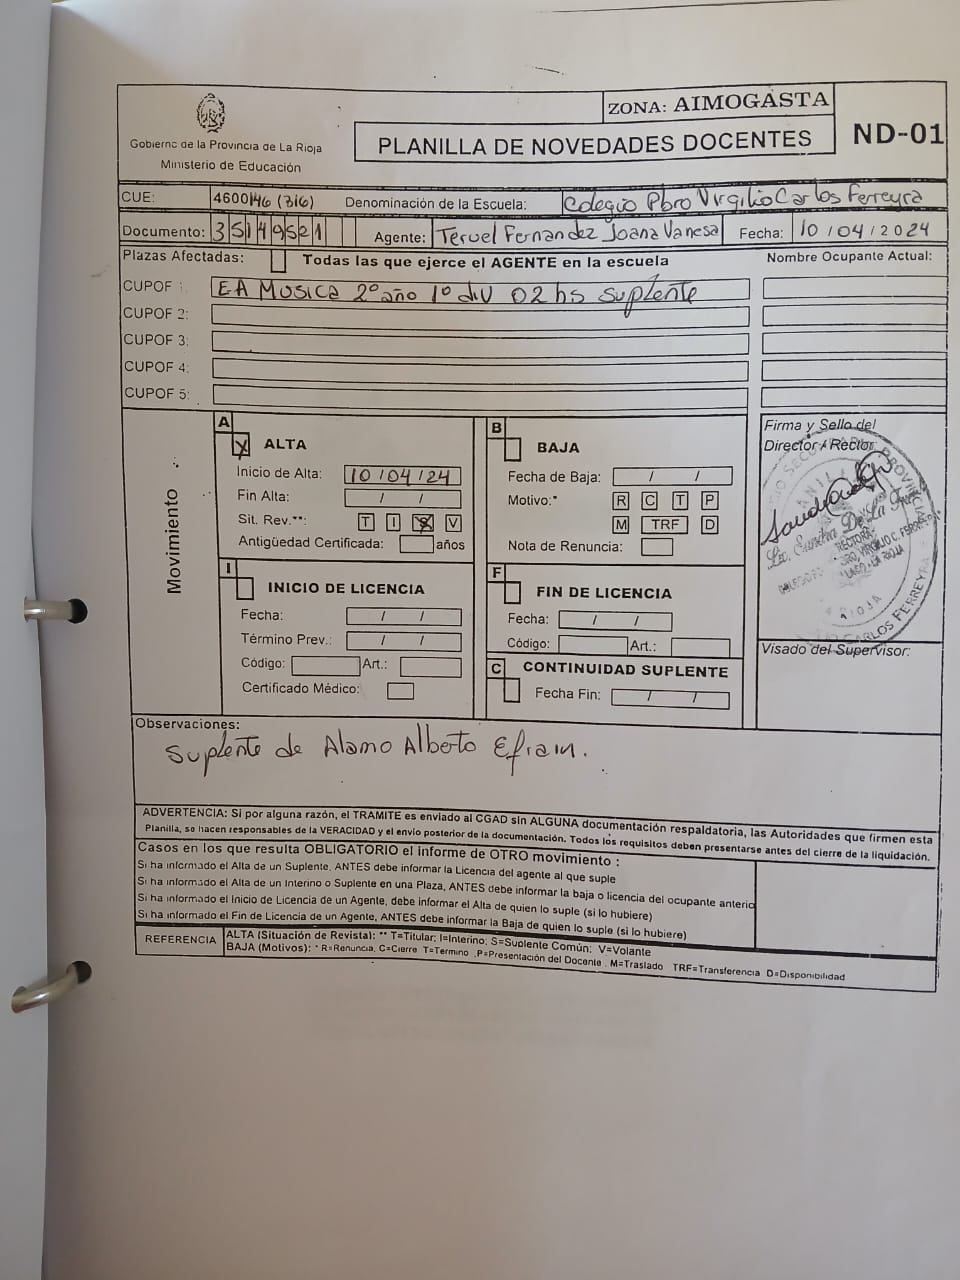 ZONA: AIMOGASTA
Gobierno de la Provincia de La Rioja
Ministerio de Educación
PLANILLA DE NOVEDADES DOCENTES
ND-01
CUE: 4600146 (316) Denominación de la Escuela: Colegio Pbro Virgilio Carlos Ferreyra
Documento: 35149521 Agente: Teruel Fernandez Joana Vanesa Fecha: 10/04/2024
Plazas Afectadas: Todas las que ejerce el AGENTE en la escuela Nombre Ocupante Actual:
CUPOF 1: EA Musica 2º año 1º div 02 hs suplente
CUPOF 2:
CUPOF 3:
CUPOF 4:
CUPOF 5:
Movimiento
A
X ALTA
Inicio de Alta: 10/04/24
Fin Alta: / /
Sit. Rev.**: T I X V
Antigüedad Certificada: años
B
BAJA
Fecha de Baja: / /
Motivo:* R C T P
M TRF D
Nota de Renuncia:
I
INICIO DE LICENCIA
Fecha: / /
Término Prev.: / /
Código: Art.:
Certificado Médico:
F
FIN DE LICENCIA
Fecha: / /
Código: Art.:
C CONTINUIDAD SUPLENTE
Fecha Fin: / /
Firma y Sello del
Director / Rector:
RECTORA
LA RIOJA
CARLOS FERREYRA
Visado del Supervisor:
Observaciones:
Suplente de Alamo Alberto Efrain.
ADVERTENCIA: Si por alguna razón, el TRAMITE es enviado al CGAD sin ALGUNA documentación respaldatoria, las Autoridades que firmen esta
Planilla, se hacen responsables de la VERACIDAD y el envio posterior de la documentación. Todos los requisitos deben presentarse antes del cierre de la liquidación.
Casos en los que resulta OBLIGATORIO el informe de OTRO movimiento :
Si ha informado el Alta de un Suplente, ANTES debe informar la Licencia del agente al que suple
Si ha informado el Alta de un Interino o Suplente en una Plaza, ANTES debe informar la baja o licencia del ocupante anterio
Si ha informado el Inicio de Licencia de un Agente, debe informar el Alta de quien lo suple (si lo hubiere)
Si ha informado el Fin de Licencia de un Agente, ANTES debe informar la Baja de quien lo suple (si lo hubiere)
REFERENCIA
ALTA (Situación de Revista): ** T=Titular; I=Interino; S=Suplente Común; V=Volante
BAJA (Motivos): * R=Renuncia, C=Cierre T=Termino ,P=Presentación del Docente . M=Traslado TRF=Transferencia D=Disponibilidad